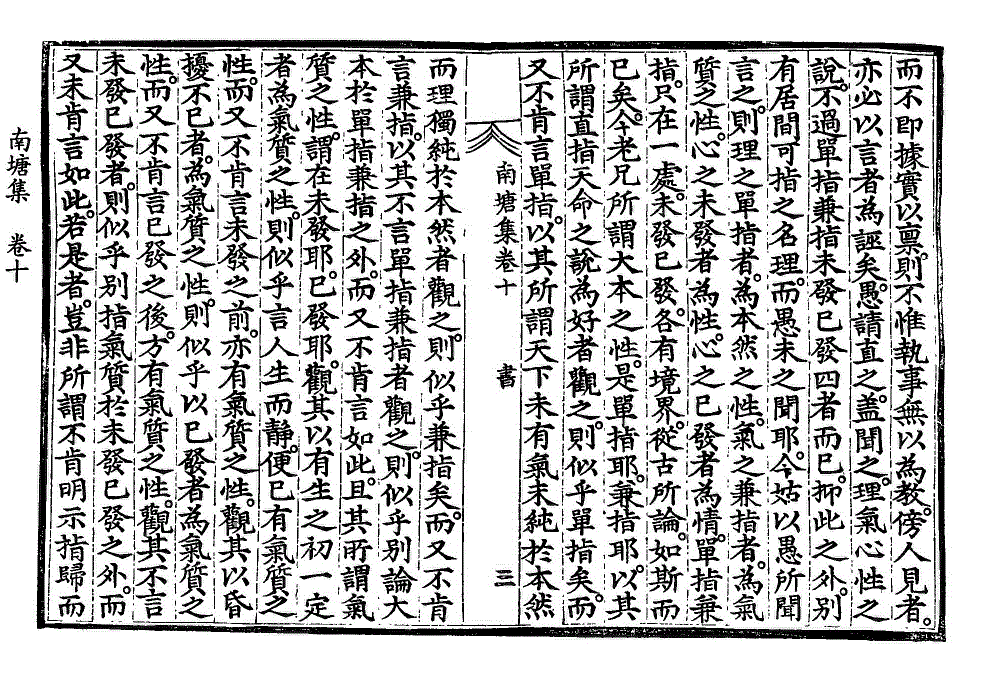 而不即據實以稟。則不惟執事無以爲教。傍人見者。
亦必以言者爲誣矣。愚請直之。蓋聞之。理氣心性之
說。不過單指兼指未發已發四者而已。抑此之外。別
有居間可指之名理。而愚未之聞耶。今姑以愚所聞
言之。則理之單指者。爲本然之性。氣之兼指者。爲氣
質之性。心之未發者爲性。心之已發者爲情。單指兼
指。只在一處。未發已發。各有境界。從古所論。如斯而
已矣。今老兄所謂大本之性。是單指耶。兼指耶。以其
所謂直指天命之說爲好者觀之。則似乎單指矣。而
又不肯言單指。以其所謂天下未有氣未純於本然
南塘集卷十 書 三
而理獨純於本然者觀之。則似乎兼指矣。而又不肯
言兼指。以其不言單指兼指者觀之。則似乎別論大
本於單指兼指之外。而又不肯言如此。且其所謂氣
質之性。謂在未發耶。已發耶。觀其以有生之初一定
者爲氣質之性。則似乎言人生而靜。便已有氣質之
性。而又不肯言未發之前。亦有氣質之性。觀其以昏
擾不已者。爲氣質之性。則似乎以已發者爲氣質之
性。而又不肯言已發之後。方有氣質之性。觀其不言
未發已發者。則似乎別指氣質於未發已發之外。而
又未肯言如此。若是者。豈非所謂不肯明示指歸而
南塘集 卷十